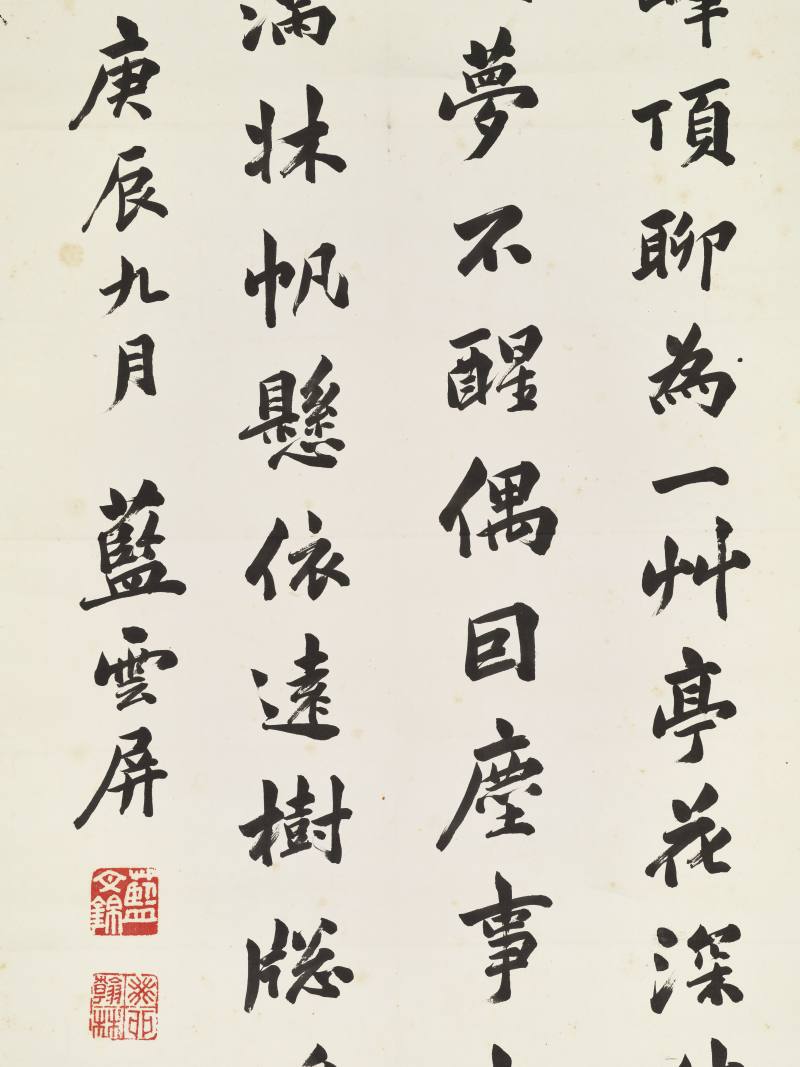 峰頂聊為一艸亭花深
夢不醒偶囙塵事
滿牀帆懸依遠樹牕
庚辰九月 藍雲屏
藍文錦
翰林